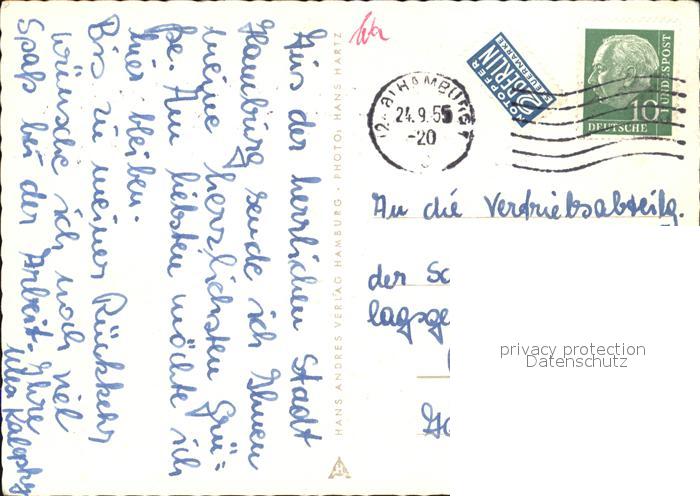 Aus der herrlichen Stadt
Hamburg sende ich Ihnen
meine herzlichsten Grü=
ße. Am liebsten möchte ich
hier bleiben.
Bis zu meiner Rückkehr
wünsche ich noch viel
Spaß bei der Arbeit. Ihre
HANS ANDRES VERLAG HAMBURG · PHOTO: HANS HARTZ
HAMBURG
24.9.55
-20
NOTOPFER
2 BERLIN
STEUERMARKE
10
DEUTSCHE
BUNDESPOST
An die Vertriebsabteilg.
der Sc
lagsge
privacy protection
Datenschutz